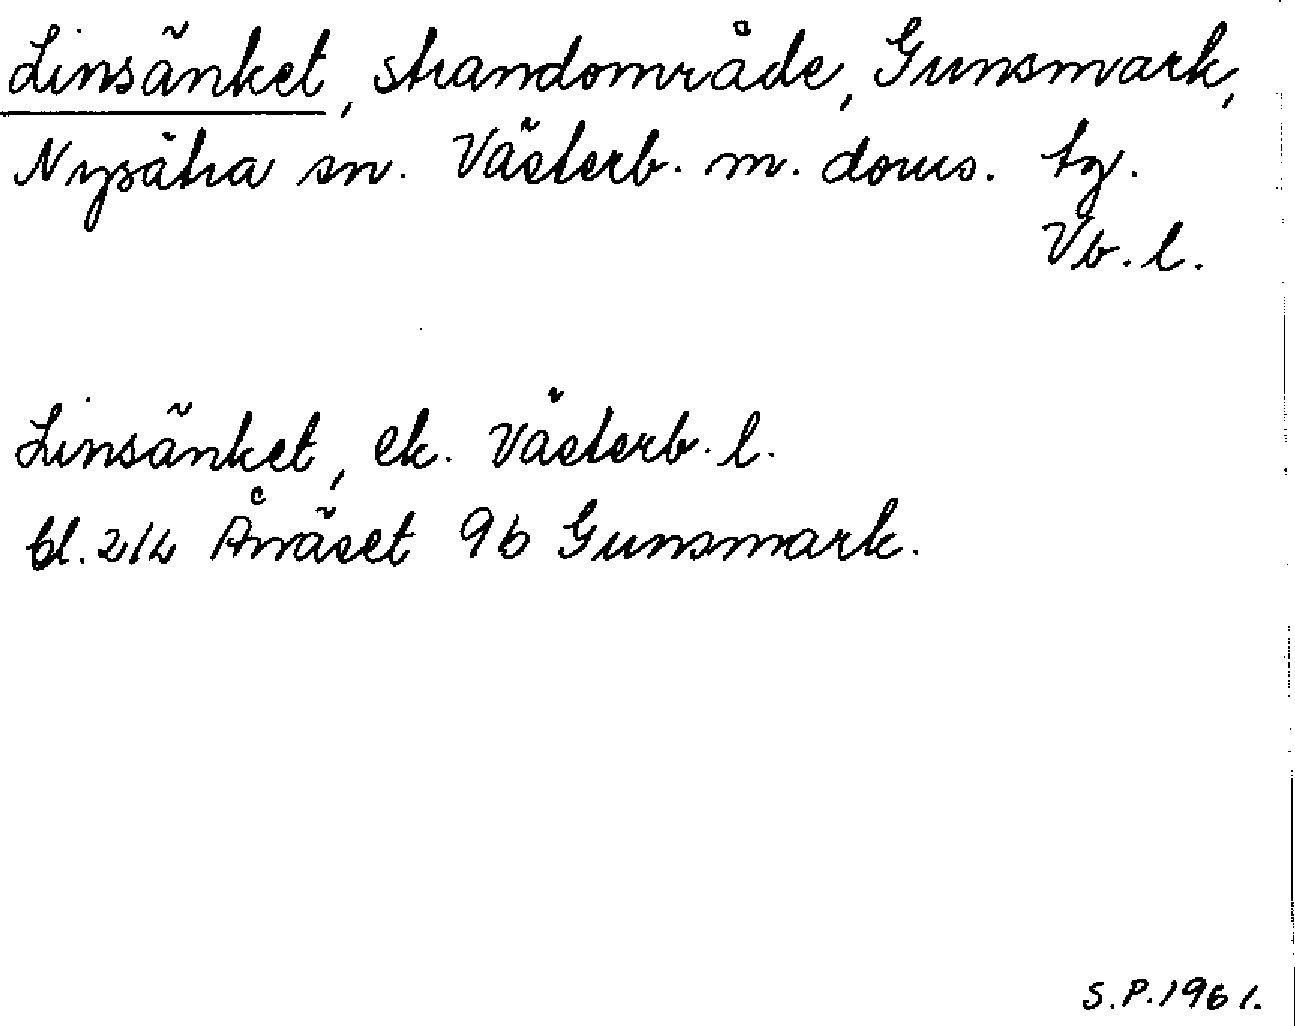 Linsänket, strandområde, Gunsmark,
Nysätra sn. Västerb. m. doms. tg.
Vb. l.
Linsänket, ek. Västerb. l.
bl. 214 Ånäset 9b Gunsmark.
S.P. 1961.